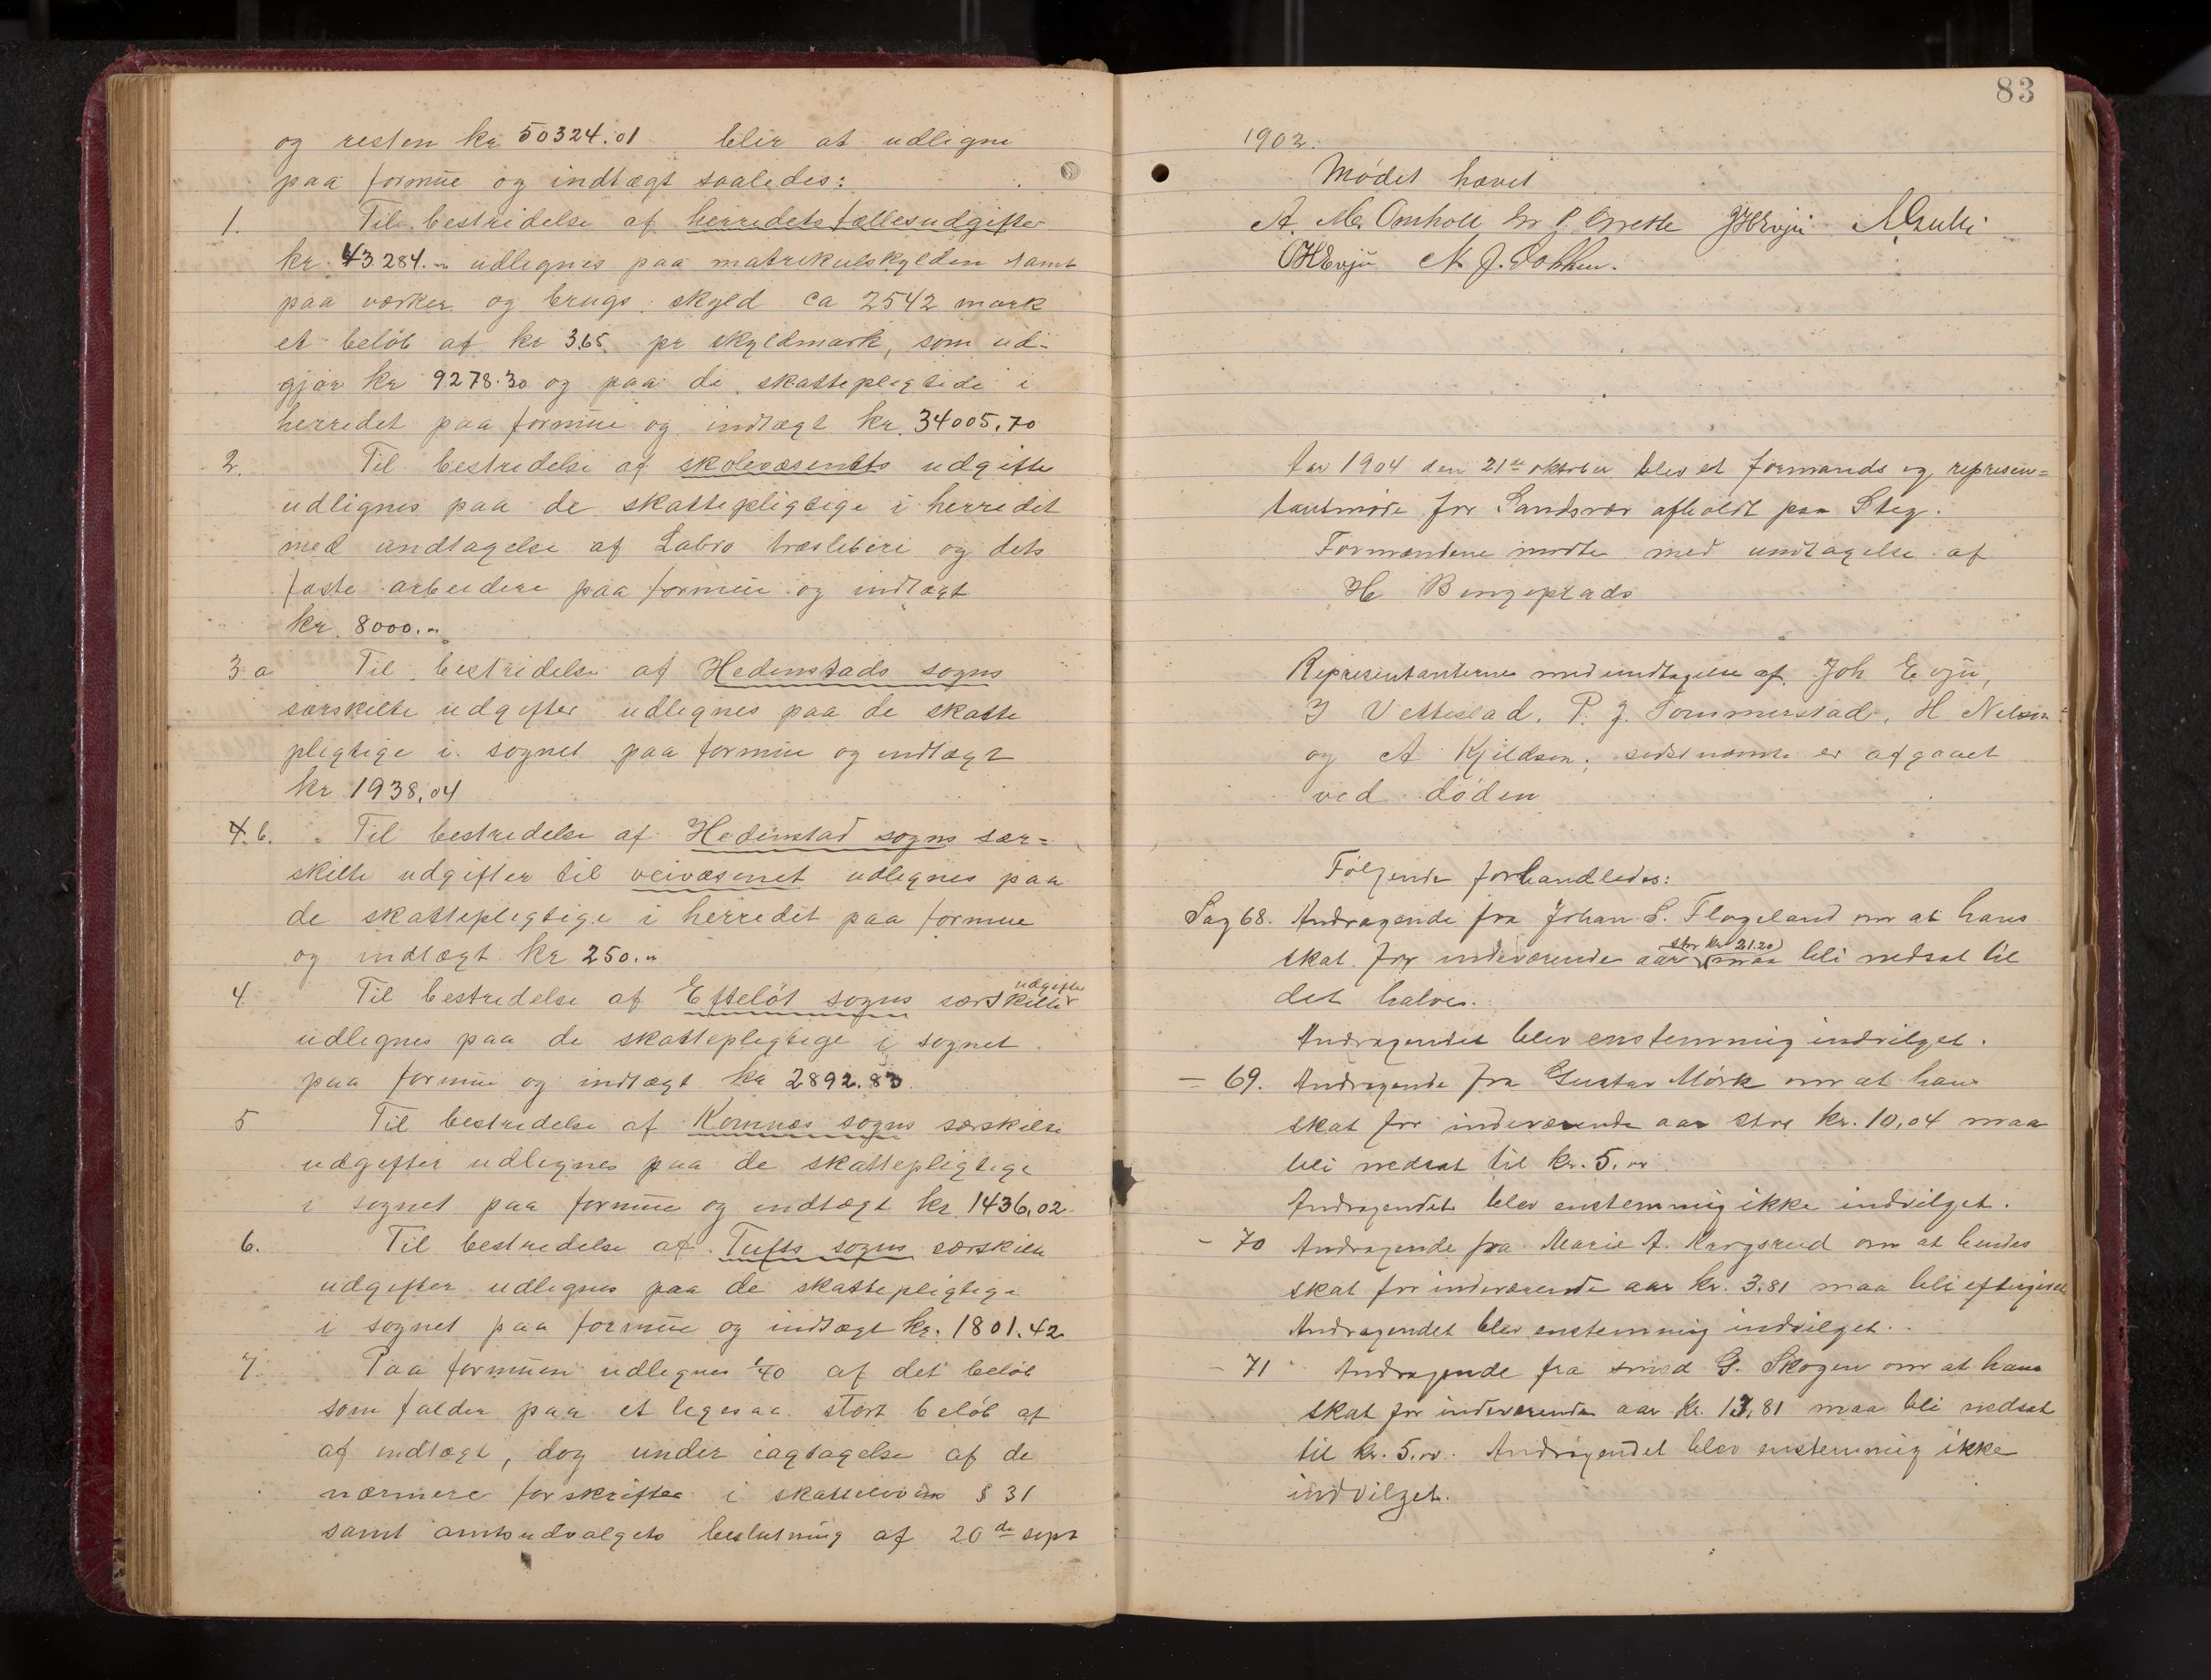 og resten kr 50324.01 blir at udligne
paa formue og indtægt saaledes:
1. Til bestridelse af herredets fællesudgifter
kr 43.284.- udlignes paa matrikulskylden samt
paa værker og brugs skyld ca 2542 mark
et beløb af kr 3.65 pr skyldmark, som ud-
gjør kr 9278.30 og paa de skattepligtide i
herredet paa formue og indtægt kr. 34005.70
2. Til bestridelse af skolevæsenets udgifte
udlignes paa de skattepligtige i herredet
med undtagelse af Labro træsliberi og dets
faste arbeidere paa formue og indtægt
kr. 8000.-
3 a Til bestridelse af Hedenstads sogns
særskilte udgifter udlignes paa de skatte
pligtige i sognet paa formue og indtægt
kr 1938,04
4. b. Til bestridelse af Hedenstad sogns sær=
skilte udgifter til veivæsenet udlignes paa
de skattepligtige i herredet paa formue
og indtægt kr 250.-
4. Til bestridelse af Efteløt sogns særskilte udgifter
udlignes paa de skattepligtige i sognet
paa formue og indtægt kr 2892.83.
5 Til bestridelse af Komnæs sogns særskilte
udgifter udlignes paa de skattepligtige
i sognet paa formue og indtægt kr 1436,02.
6. Til bestridelse af Tufts sogns særskilte
udgifter udlignes paa de skattepligtige
i sognet paa formue og indtægt kr. 1801.42
7. Paa formuen udlignes 1/40 af det beløb
som falder paa et ligesaa stort beløb af
af indtægt, dog under iagtagelse af de
nærmere forskrifter i skatteloven § 31
samt amtsudvalgets beslutning af 20de sept
83
1902.
Mødet hævet
A. M. Omholt JHEvju
OHEvju N. J. Dokken.
Aar 1904 den 21de oktober blev et formands og represen=
tantmøde for Sandsvær afholdt paa Steg.
Formændene mødte med undtagelse af
H Bingeplads
Representanterne med undtagelse af Joh Evju,
J Vettestad, P. J. Sommerstad, H Nelson
og A Kjeldsen; sidstnævnte er afgaaet
ved døden
Følgende forhandledes:
Sag 68. Andragende fra Johan S. Flageland om at hans
skat for indeværende aar (stor kr 21.20) maa bli nedsat til
det halve.
Andragendet blev enstemmig indvilget.
— 69. Andragende fra Gustav Mörk om at hans
skat for indeværende aar stor kr. 10,04 maa
bli nedsat til kr. 5.00
Andragendet blev enstemmig ikke indvilget.
– 70 Andragende fra Marie A. Kragsrud om at hendes
skat for indeværende aar kr. 3.81 maa bli eftergivet
Andragendet blev enstemmig indvilget.
– 71 Andragende fra smed G. Skogen om at hans
skat for indeværende aar kr. 13,81 maa bli nedsat
til kr. 5.00. Andragendet blev enstemmig ikke
indvilget.